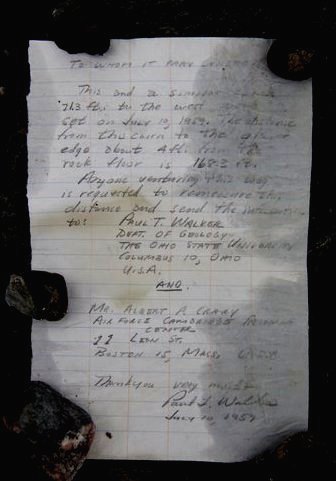 TO WHOM IT MAY CONCERN:
This and a similar
21.3 ft. to the west
set on July 10, 1959. The distance
from this cairn to the glacier
edge about 4 ft. from the
rock floor is 168.3 ft.
Anyone venturing this way
is requested to remeasure this
distance and send the information
to: PAUL T. WALKER
DEPT. OF GEOLOGY
THE OHIO STATE UNIVERSITY
COLUMBUS 10, OHIO
U.S.A.
AND
MR. ALBERT P. CRARY
AIR FORCE CAMBRIDGE RESEARCH
CENTER
11 LEON ST.
BOSTON 15, MASS. U.S.A.
Thank you very much
Paul T. Walker
July 10, 1959